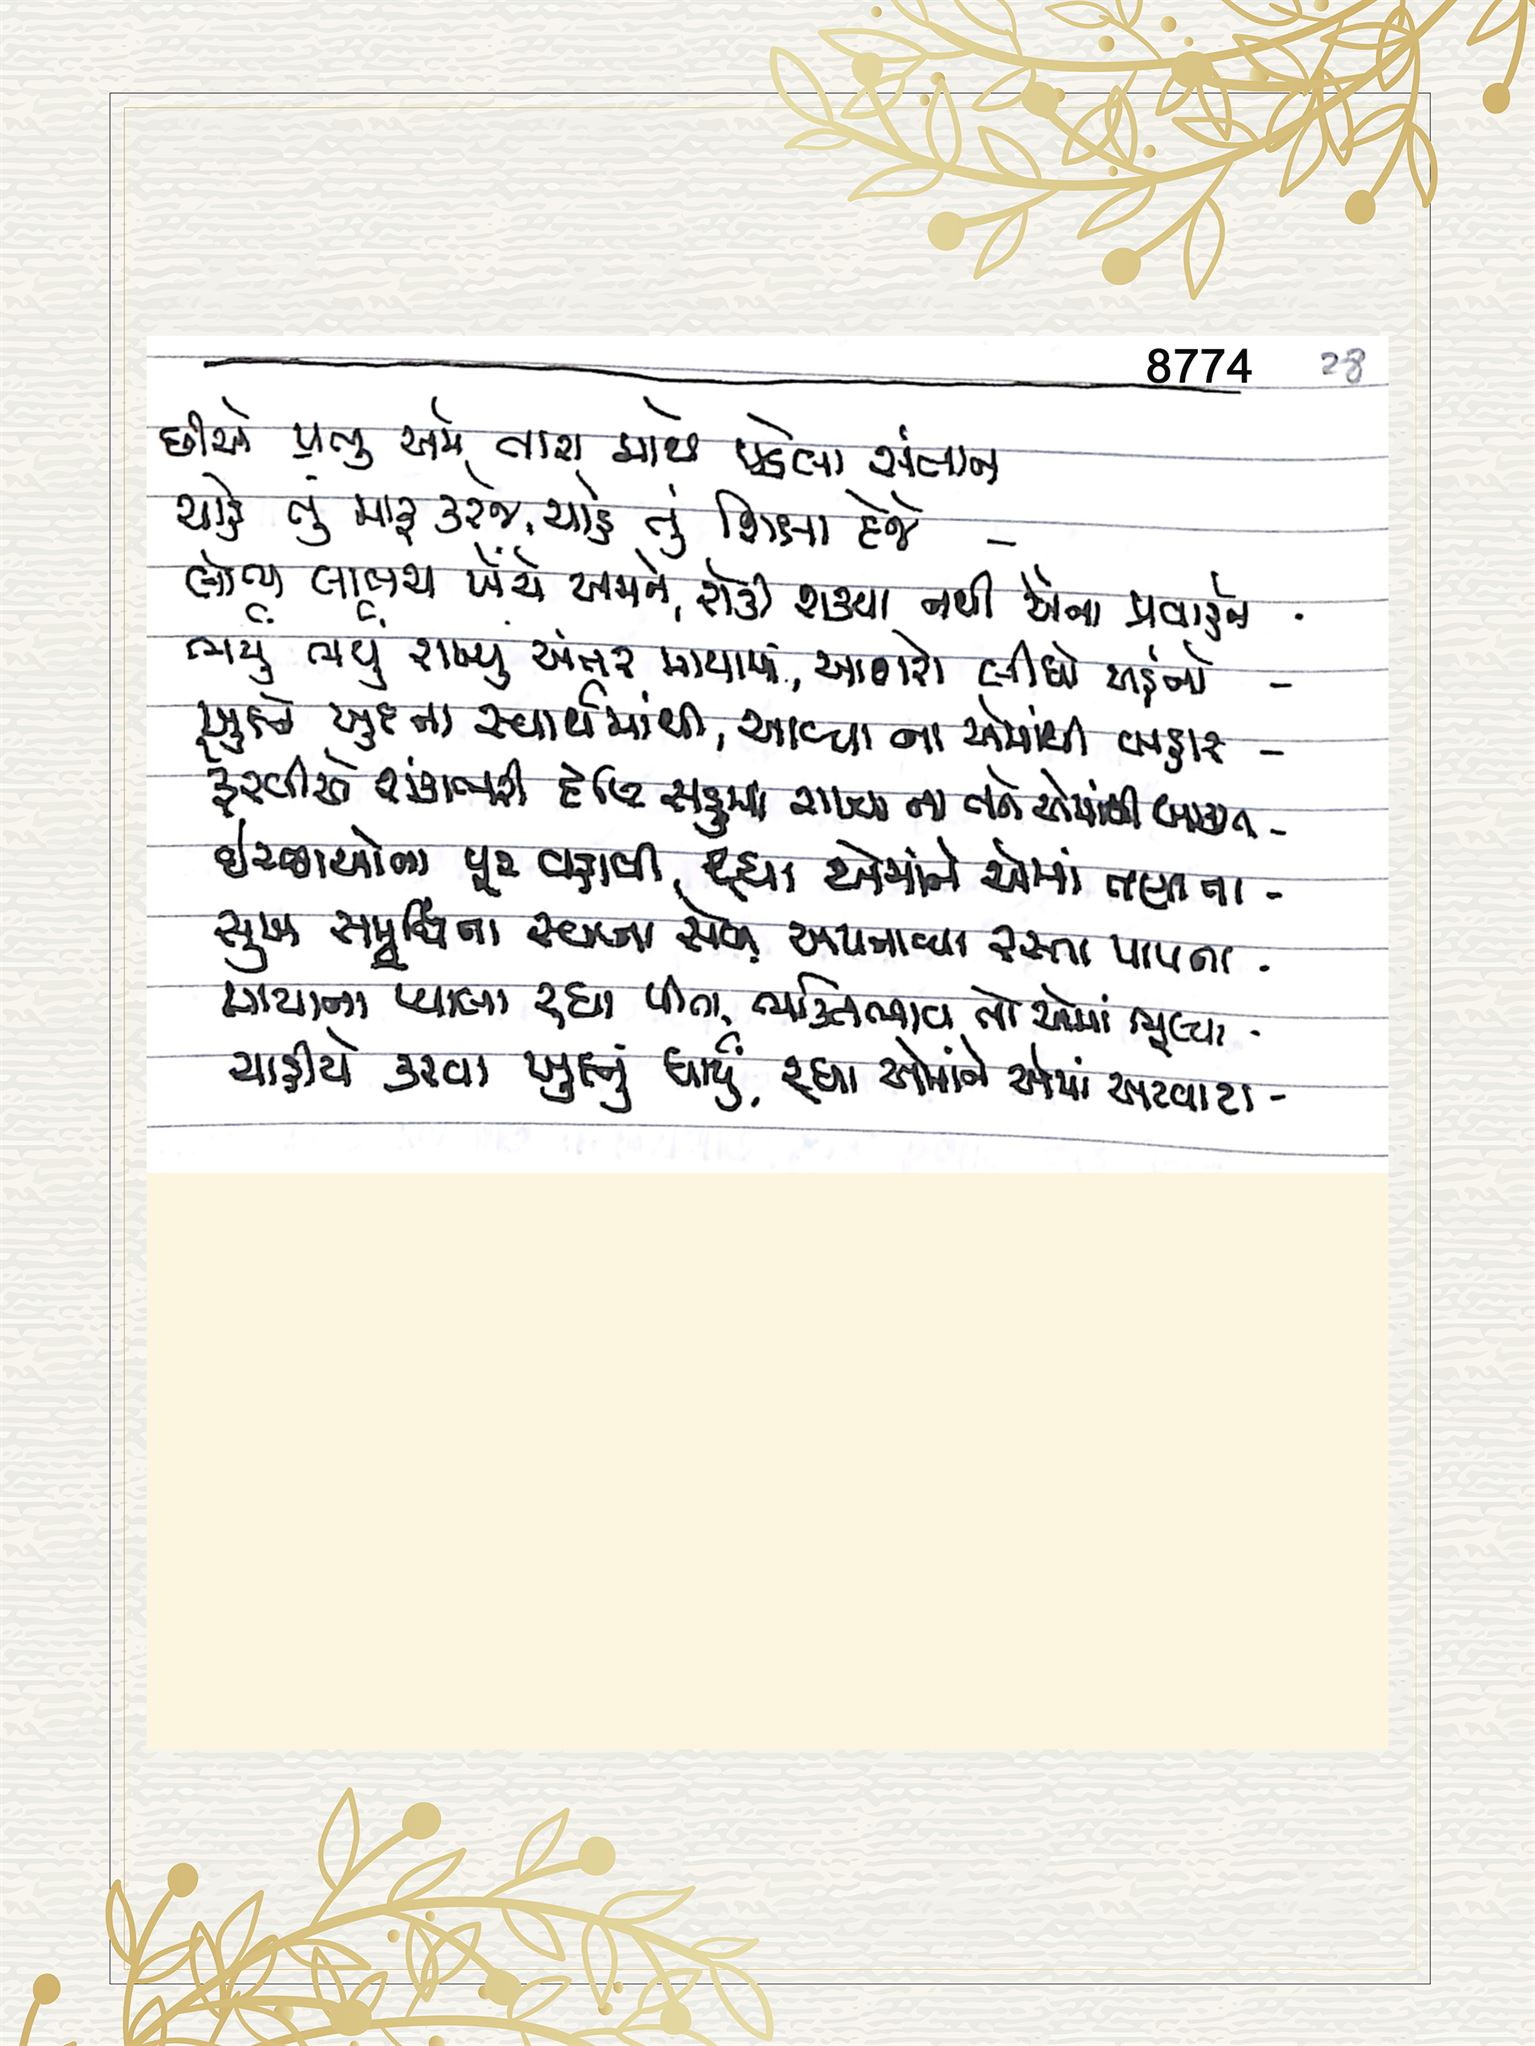 8774 28
છીએ પ્રભુ અમે તારા માથે પડેલા સંતાન
ચાહે તું માફ કરજે, ચાહે તું શિક્ષા દેજે –
લોભ લાલચ ખેંચે અમને, રોકી શક્યા નથી એના પ્રવાહને .
ભર્યું ભર્યું રાખ્યું અંતર માયામાં, આશરો લીધો અહંનો –
ખુદને ખુદના સ્વાર્થમાંથી, આવ્યા ના એમાંથી બહાર –
ફેરવીએ શંકાભરી દૃષ્ટિ સહુમાં રાખ્યા ના તને એમાંથી બાકાત –
ઈચ્છાઓના પૂર વહાવી, રહ્યા એમાંને એમાં તણાતા –
સુખ સમૃદ્ધિના સ્વપ્ના સેવી અપનાવ્યા રસ્તા પાપના .
માયાના પ્યાલા રહ્યા પીતા, ભક્તિભાવ તો એમાં ભૂલ્યા .
ચાહીયે કરવા ખુદનું ધાર્યું, રહ્યા એમાંને એમાં અટવાતા –